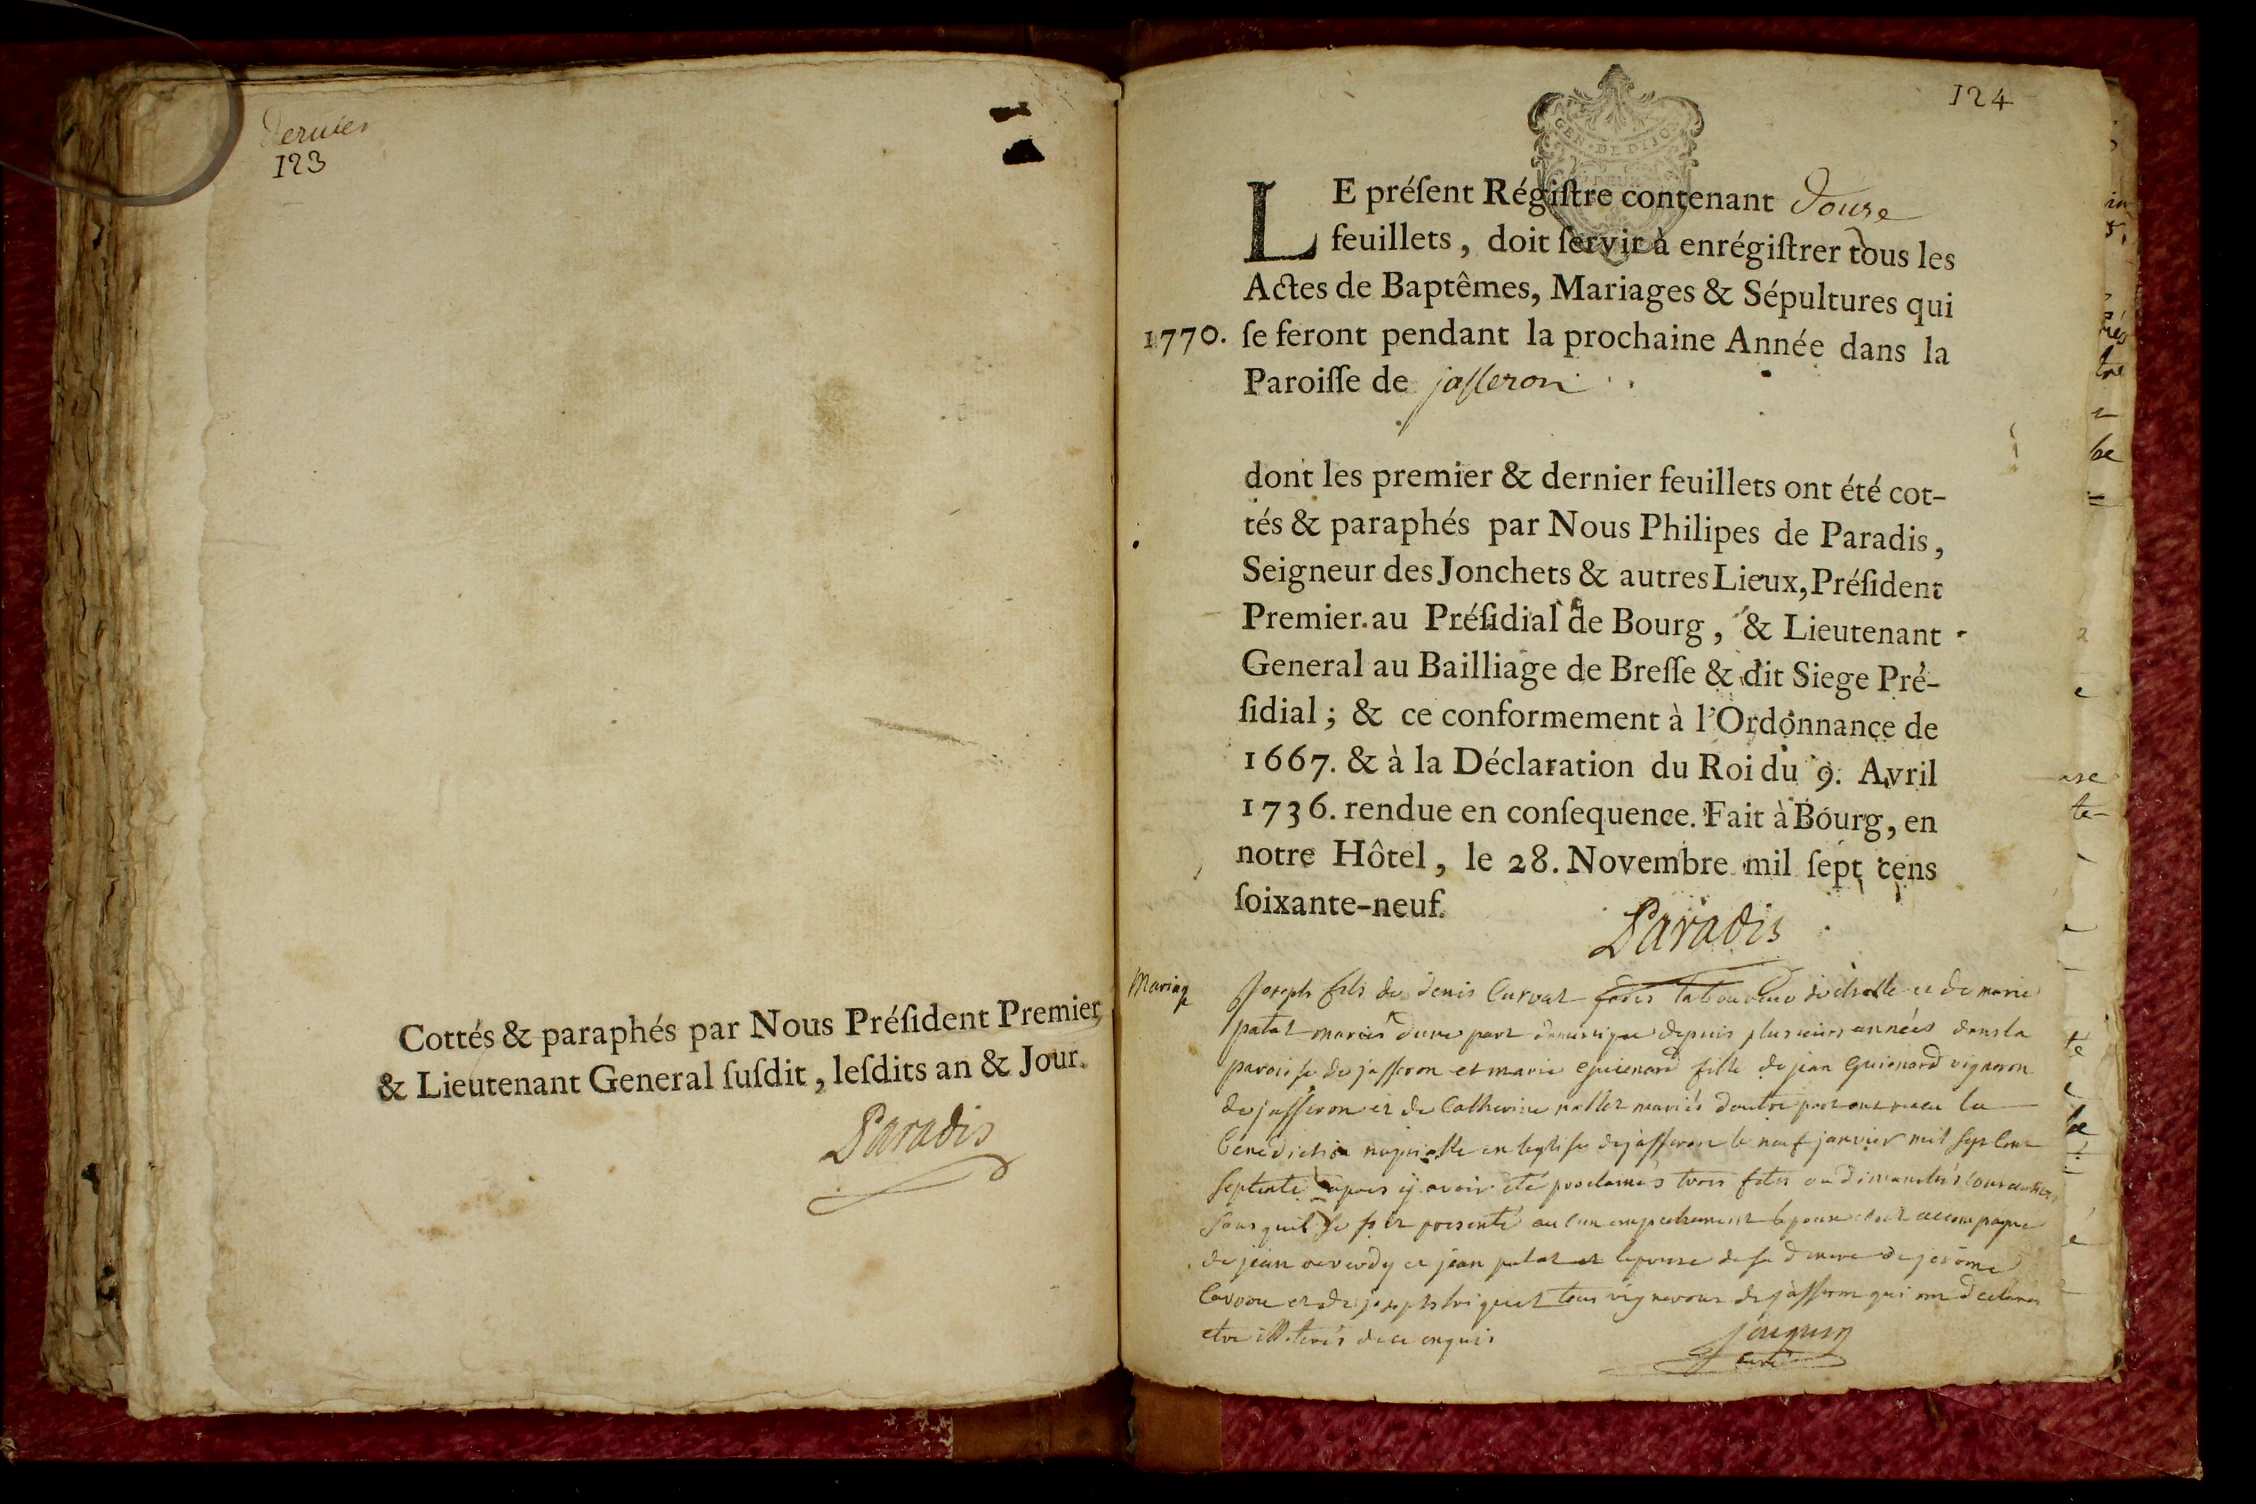 Dernier
123
Cottés & paraphés par Nous Préſident Premier,
& Lieutenant General ſuſdit, leſdits an & Jour.
Paradis
124
GEN. DE DIJON
LE préſent Régiſtre contenant Douze
feuillets, doit ſervir à enrégiſtrer tous les
Actes de Baptêmes, Mariages & Sépultures qui
1770. ſe feront pendant la prochaine Année dans la
Paroiſſe de jasseron
dont les premier & dernier feuillets ont été cot-
tés & paraphés par Nous Philipes de Paradis,
Seigneur des Jonchets & autres Lieux, Préſident
Premier au Préſidial de Bourg, & Lieutenant
General au Bailliage de Breſſe & dit Siege Pré-
ſidial; & ce conformement à l'Ordonnance de
1667. & à la Déclaration du Roi du 9. Avril
1736. rendue en conſequence. Fait à Bourg, en
notre Hôtel, le 28. Novembre mil ſept cens
ſoixante-neuf.
Paradis
Mariage
joseph fils de denis Curvat laboureur et de marie
patat mariés d'une part depuis plusieurs années dans la
paroisse de jasseron et marie guienard fille de jean guienard vigneron
de jasseron et de Catherine mariés d'autre part ont recu la
benediction nuptialle en leglise de jasseron le neuf janvier mil sept cent
septente apres y avoir été proclamés trois fetes ou dimanches
sans quil se soit presenté aucun empechement lepoux etoit accompagné
de jean et jean patat et lepouse de sa de jerome
et de joseph tous vignerons de jasseron qui ont declarés
etre illiterés de ce enquis
curé